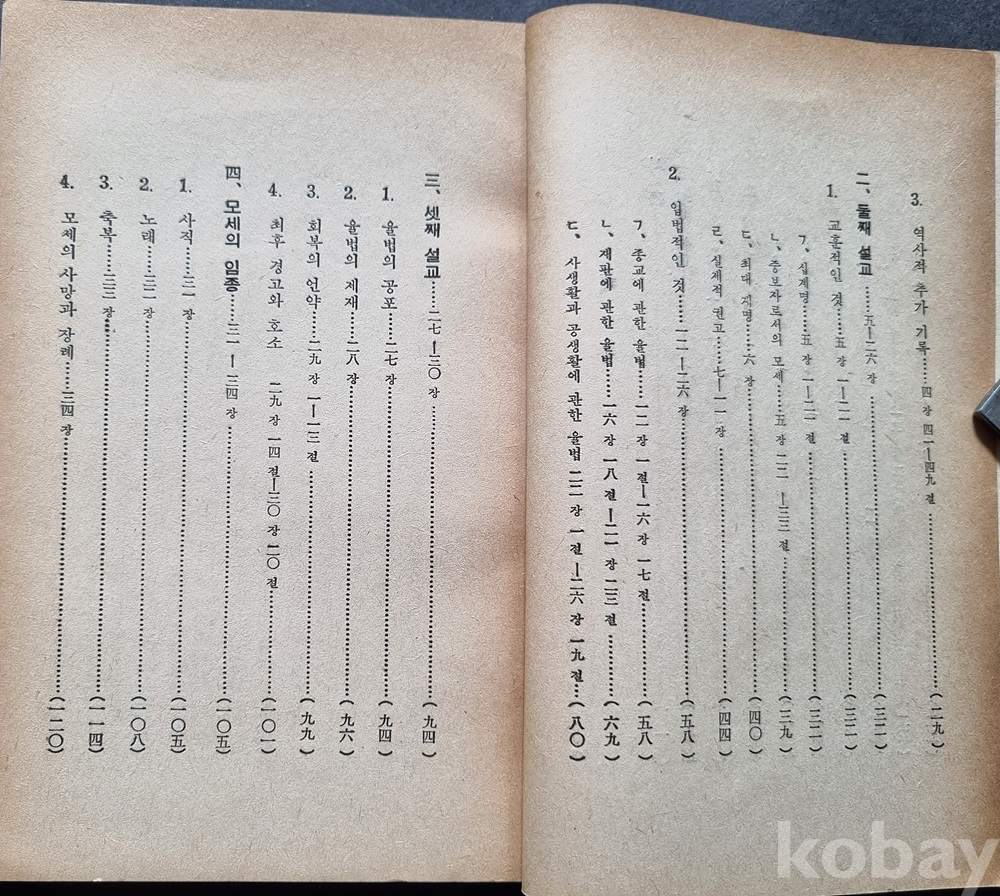 3. 역사적 추가 기록……四장 四一—四九절……(二九)
二、둘째 설교……五—二六장……(三二)
1. 교훈적인 것……五장 一—二一절……(三二)
ㄱ、십계명……五장 一—二一절……(三二)
ㄴ、중보자로서의 모세……五장 二二—三三절……(三九)
ㄷ、최대 지명……六장……(四〇)
ㄹ、실제적 권고……七—一一장……(四四)
2. 입법적인 것……一二—二六장……(五八)
ㄱ、종교에 관한 율법……一二장 一절—一六장 一七절……(五八)
ㄴ、재판에 관한 율법……一六장 一八절—二一장 二三절……(六九)
ㄷ、사생활과 공생활에 관한 율법 二二장 一절—二六장 一九절…(八〇)
三、셋째 설교……二七—三〇장……(九四)
1. 율법의 공포……二七장……(九四)
2. 율법의 제재……二八장……(九六)
3. 회복의 언약……二九장 一—一三절……(九九)
4. 최후 경고와 호소 二九장 一四절—三〇장 二〇절……(一〇一)
四、모세의 임종……三一—三四장……(一〇五)
1. 사직……三一장……(一〇五)
2. 노래……三二장……(一〇八)
3. 축복……三三장……(一一四)
4. 모세의 사망과 장례……三四장……(一二〇)
kobay